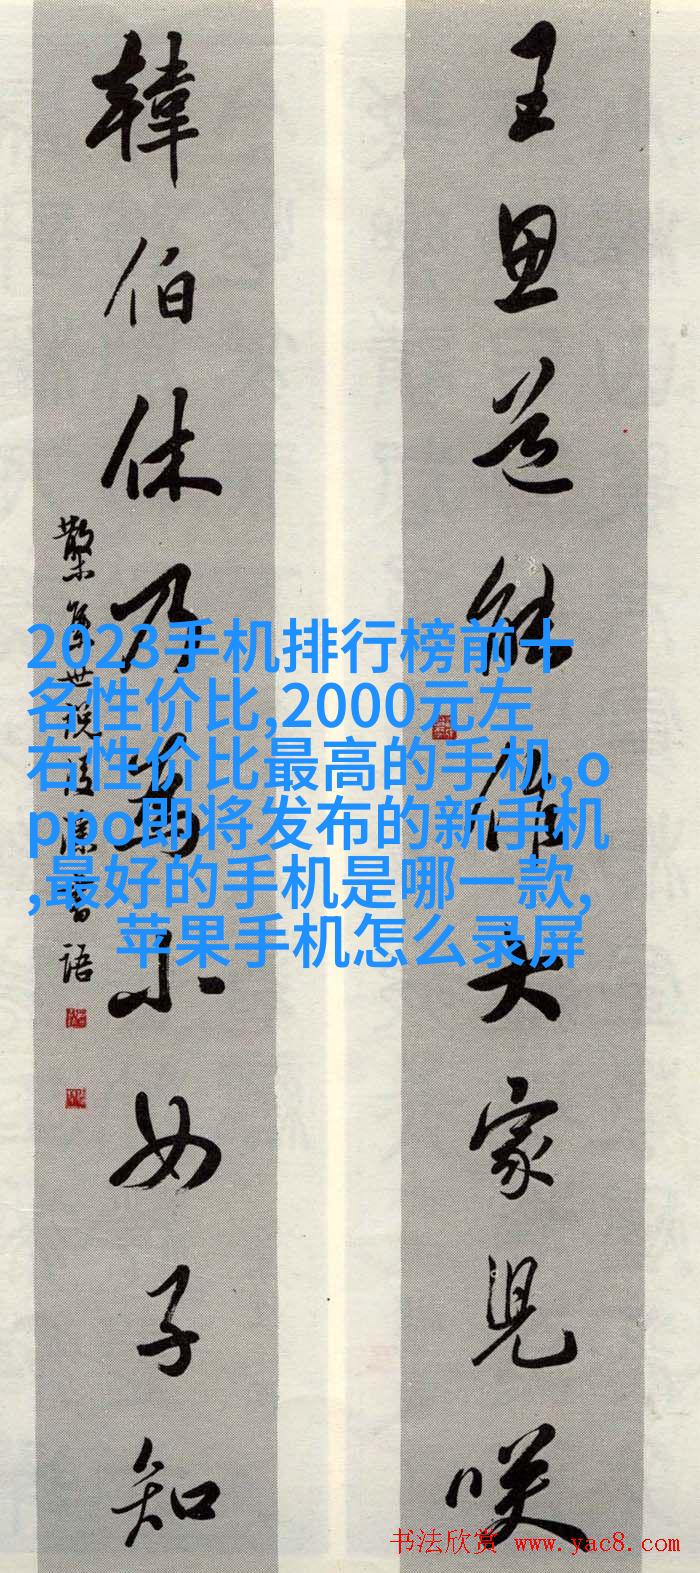 王思道能作大家兒咲
韓伯休乃為小女子知
世說後漢書語
2023手机排行榜前十
名性价比,2000元左
右性价比最高的手机,o
ppo即将发布的新手机
,最好的手机是哪一款,
苹果手机怎么录屏
书法欣赏 www.yac8.com